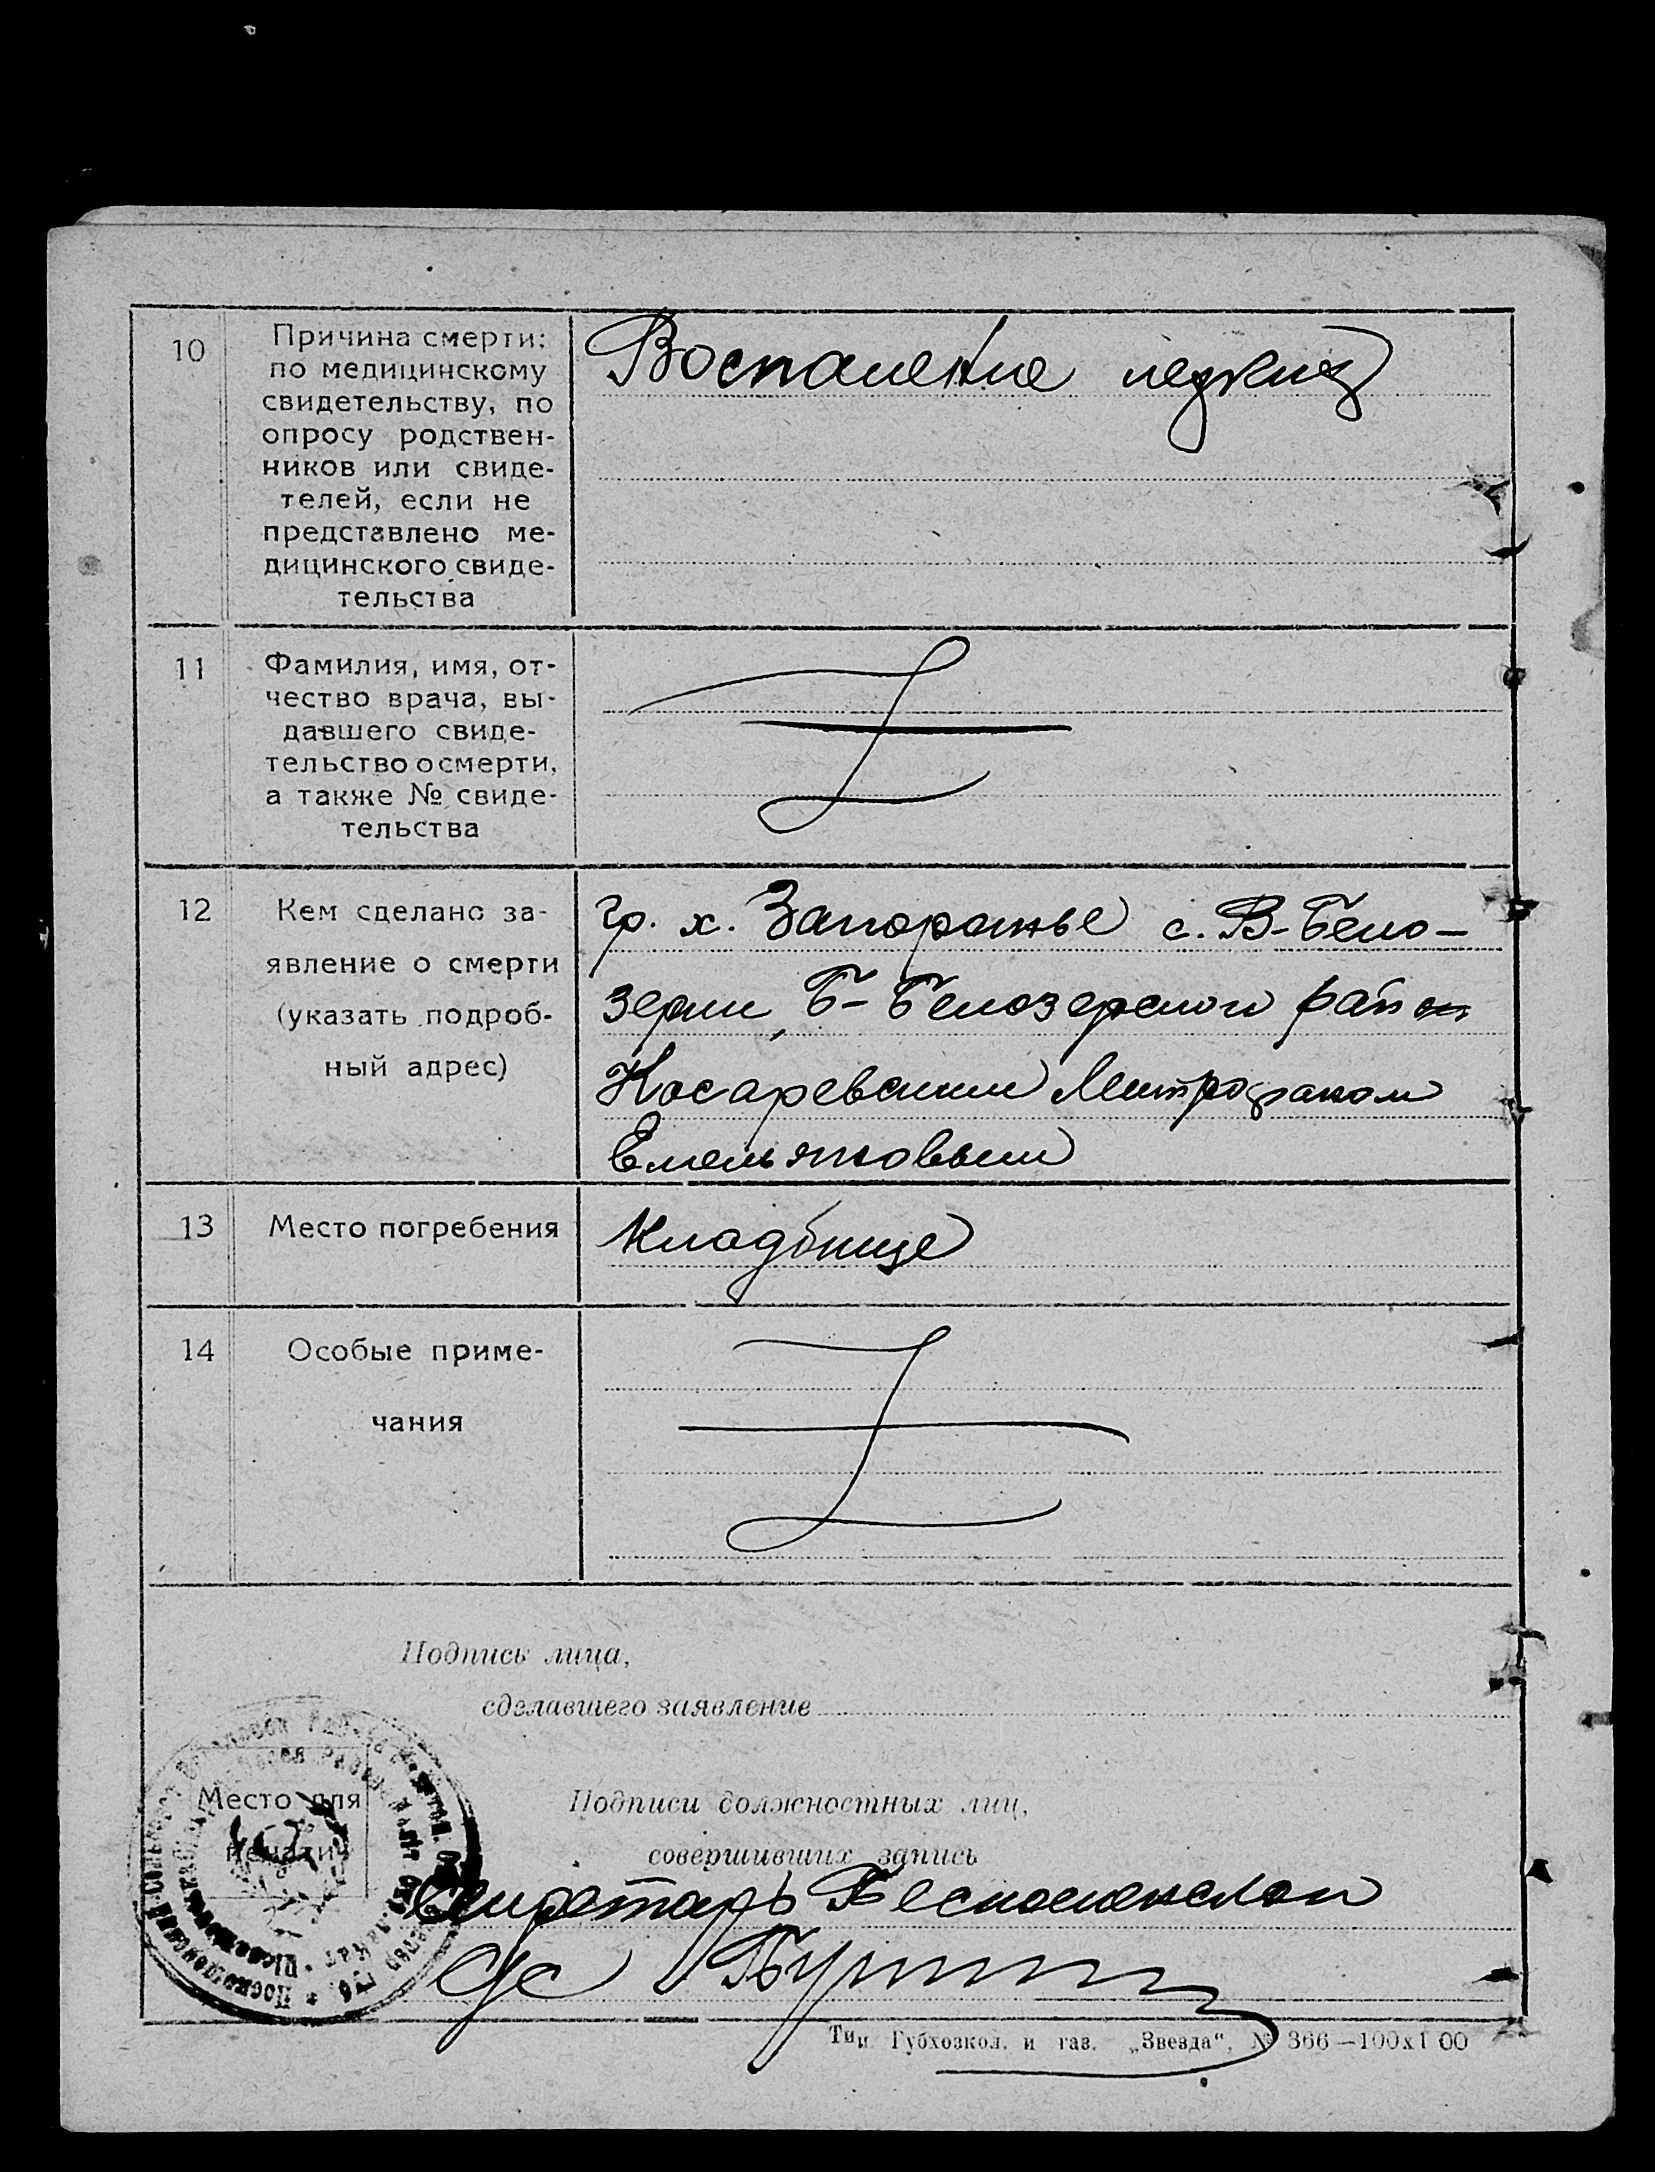 10
Причина смерти:
по медицинскому
свидетельству, по
опросу родствен-
ников или свиде-
телей, если не
представлено ме-
дицинского свиде-
тельства
Воспаление легких
11
Фамилия, имя, от-
чество врача, вы-
давшего свиде-
тельство о смерти,
а также № свиде-
тельства
12
Кем сделано за-
явление о смерти
(указать подроб-
ный адрес)
гр. х. Запорожье с. В-Бело-
зерки, Б-Белозерского рай
Косаревским Митрофаном
Емельяновым
13
Место погребения
Кладбище
14
Особые приме-
чания
Подпись лица,
сделавшего заявление
Место для
печати
Подписи должностных лиц,
совершивших запись
Секретарь
Тип. Губхозкол. и газ. „Звезда“, № 366—100х1 00